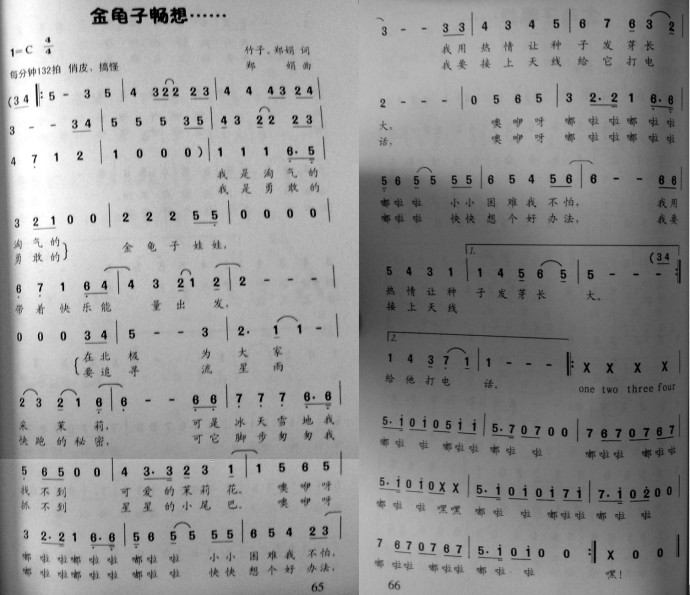 金龟子畅想……
1=C 4/4
竹子、郑娟 词
每分钟132拍 俏皮、搞怪
郑 娟 曲
(34 5 - 35 4 322 23 4 4 323 24
3 - - 34 5 5 5 35 43 22 2 34
4 7 1 2 1 0 0 0) 1 1 1 6·5
我 是 淘 气 的
我 是 勇 敢 的
3 21 0 0 2 2 2 55 0 0 0 0
淘 气 的
勇 敢 的
金 龟 子 娃 娃,
6 7 1 64 4 3 21 2 2 - -
带 着 快 乐 能 量 出 发,
0 0 0 34 5 - - 3 2· 1 1 -
在 北 极 为 大 家
要 追 寻 流 星 雨
2 3 21 6 6 - - 66 7 7 7 6·6
采 茉 莉, 可 是 冰 天 雪 地 我
快 跑 的 秘 密, 可 它 脚 步 匆 匆 我
5 65 0 0 4 3·3 23 1 1 5 6 5
找 不 到 可 爱 的 茉 莉 花。 噢 咿 呀
抓 不 到 星 星 的 小 尾 巴。 噢 咿 呀
3 2·2 1 6·6 5 6 5 55 6 5 4 23
嘟 啦 啦 嘟 啦 啦 嘟 啦 啦 小 小 困 难 我 不 怕,
嘟 啦 啦 嘟 啦 啦 嘟 啦 啦 快 快 想 个 好 办 法,
65
3 - - 33 4 4 5 6 7 6 32
我 用 热 情 让 种 子 发 芽 长
我 要 接 上 天 线 给 它 打 电
2 - - - 0 5 6 5 3 2·2 1 6·6
大。 噢 咿 呀 嘟 啦 啦 嘟 啦 啦
话。 噢 咿 呀 嘟 啦 啦 嘟 啦 啦
5 6 5 55 6 5 4 56 6 - - 66
嘟 啦 啦 小 小 困 难 我 不 怕, 我 用
嘟 啦 啦 快 快 想 个 好 办 法, 我 要
1.
(34
5 4 3 1 1 4 5 6 5 5 - - -
热 情 让 种 子 发 芽 长 大。
接 上 天 线
2.
1 4 3 7 1 1 - - - X X X X
给 他 打 电 话。 one two three four
5·1 01 05 11 5·7 07 00 76 70 70 67
嘟 啦 啦 嘟 啦 嘟 啦 啦 嘟 啦
5·1 01 0X X 5·1 01 01 71 7·1 02 00
嘟 啦 啦 嘿 嘿 嘟 啦 啦 嘟 啦 嘟 啦 啦
7 67 07 67 5·1 01 0 0 0 X 0 0
嘟 啦 啦 嘟 啦 嘟 啦 啦 嘿!
66